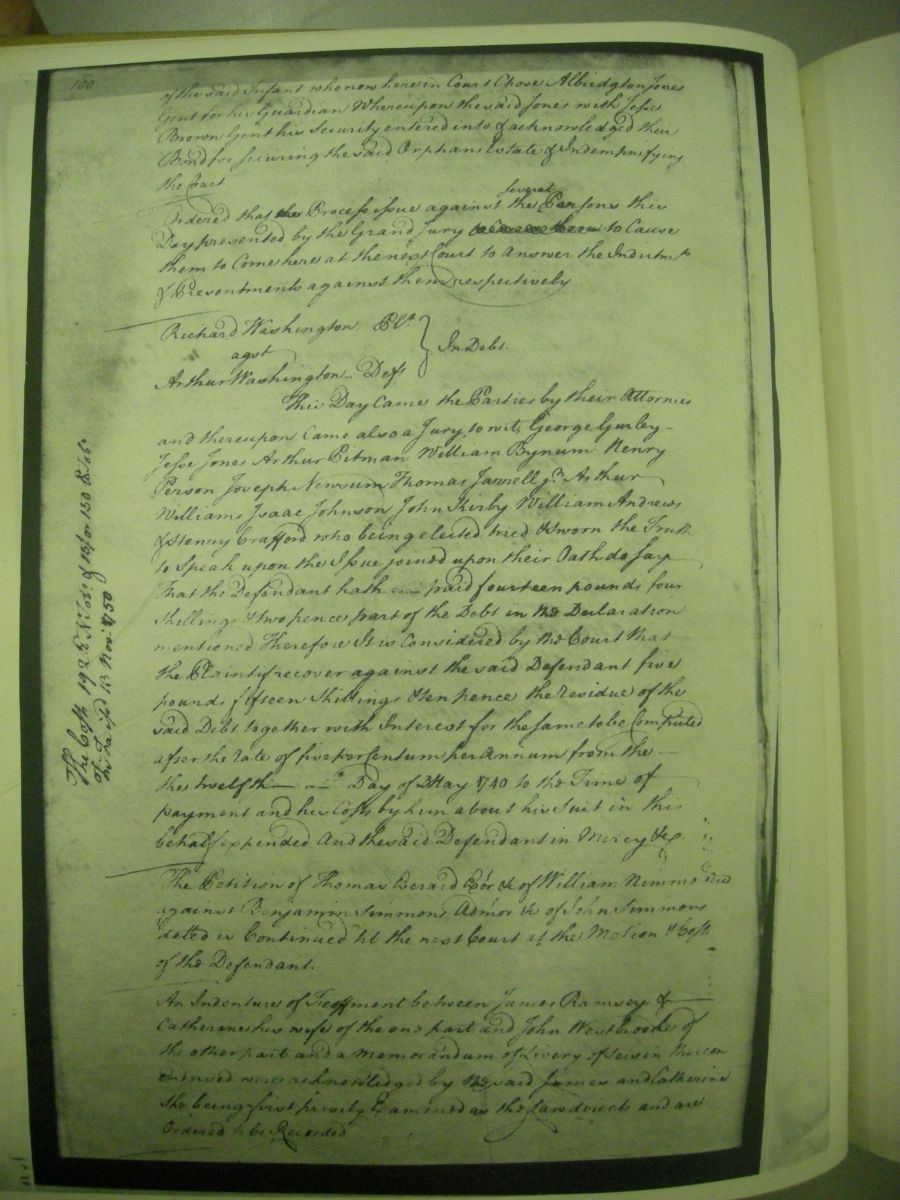 100
of the said Infant who now here in Court Chose Albridgton Jones
Gent for his Guardian Whereupon the said Jones with Jesse
Brown Gent his Security entered into & acknowledged their
Bond for securing the said Orphans Estate & Indemnifying
the Court
Ordered that the Process issue against the several Persons this
Day presented by the Grand Jury to Cause
them to Come here at the next Court to answer the Indictmts
& Presentments against them respectively
Richard Washington Plt.
agst
Arthur Washington Deft
In Debt.
This Day Came the Parties by their Attornies
and thereupon Came also a Jury, to wit, George Gurley
Jesse Jones Arthur Pitman William Bynum Henry
Person Joseph Newsum Thomas Jarrell jr. Arthur
Williams Isaac Johnson John Kirby William Andrews
& Henry Crafford who being elected tried & sworn the Truth
to Speak upon the Issue joined upon their Oath do say
That the Defendant hath paid fourteen pounds four
Shillings & two pence part of the Debt in the Declaration
mentioned Therefore It is Considered by the Court that
the Plaintif recover against the said Defendant five
pounds fifteen Shillings & ten pence the residue of the
said Debt together with Interest for the same to be Computed
after the rate of five per Centum per Annum from the
the twelfth Day of May 1740 to the Time of
payment and his Costs by him about his Suit in this
behalf expended And the said Defendant in Mercy &c.
The Petition of Thomas Berard Exor &c of William Nimmo decd
against Benjamin Simmons Admor &c of John Simmons
decd is Continued 'til the next Court at the Motion & Costs
of the Defendant.
An Indenture of Feoffment between James Ramsey &
Catherine his wife of the one part and John Westbrooke of
the other part and a memorandum of Livery of Seisin thereon
endorsed were acknowledged by the said James and Catherine
She being first privily Examined as the Law directs and are
Ordered to be Recorded
The Costs 192
13 Nov: 1750